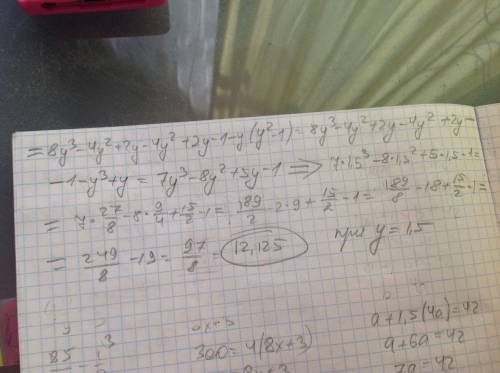 = 8y³-4y²+2y-4y²+2y-1-y(y²-1)= 8y³-4y²+2y-4y²+2y-
-1-y³+y = 7y³-8y²+5y-1 => 7·1,5³-8·1,5²+5·1,5-1=
= 7·27/8-8·9/4+15/2-1= 189/2-2·9+15/2-1= 189/8-18+15/2-1=
= 249/8-19= 97/8= 12,125 при y=1,5
300=4(8x+3)
a+1,5(4a)=42
a+6a=42
7a=42